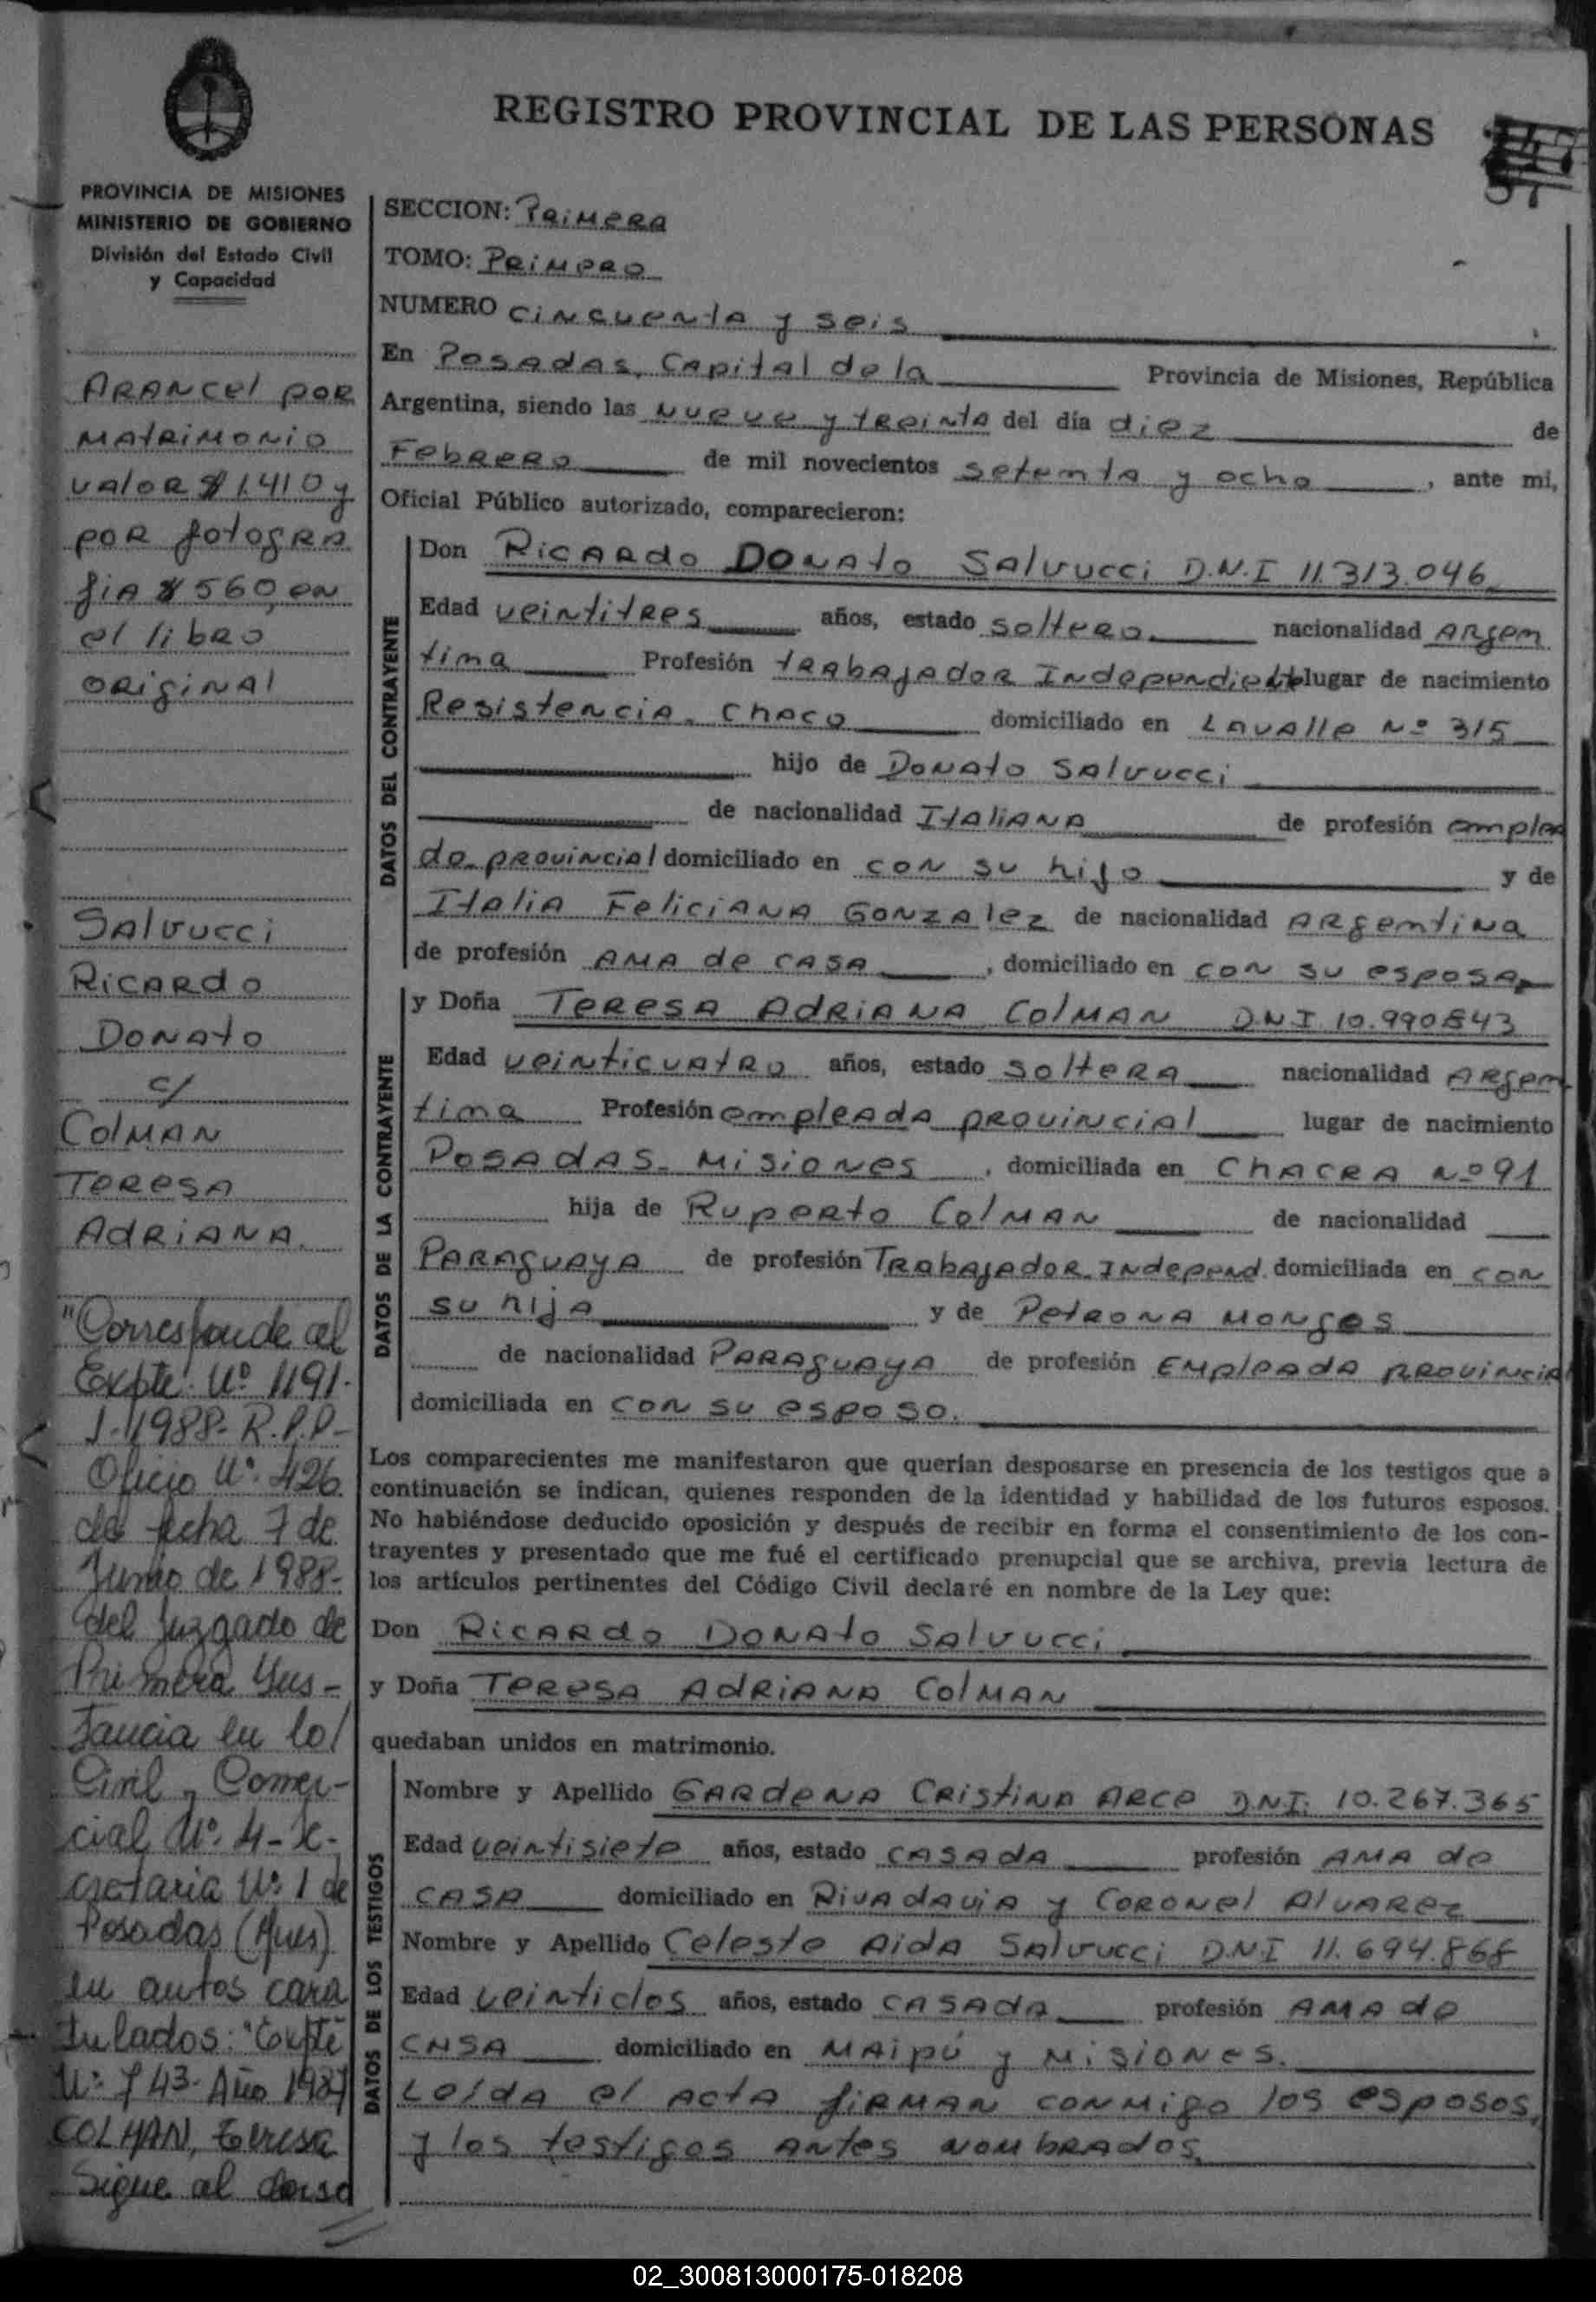 REGISTRO PROVINCIAL DE LAS PERSONAS
57
PROVINCIA DE MISIONES
MINISTERIO DE GOBIERNO
División del Estado Civil
y Capacidad
ARANCel poR
MAtRiMONiO
vAloR $ 1.410 y
poR fotogRA
fiA $ 560, en
el libRo
oRiginAl
SAlvucci
RicARdo
DoNAto
c/
ColMAN
TeResA
AdRiANA.
"Corresponde al
Expte. Nº 1191-
J-1988- R.P.P-
Oficio Nº 426
de fecha 7 de
Junio de 1988-
del Juzgado de
Primera Ins-
tancia en lo
Civil y Comer-
cial Nº 4- Se-
cretaria Nº 1 de
Posadas (Mnes)
en autos cara
tulados: "Expte
Nº 743- Año 1987
COLMAN, Teresa
Sigue al dorso
SECCION: PRiMeRA
TOMO: PRiMeRo
NUMERO ciNcuentA y seis
En PosAdAs, CApitAl de la Provincia de Misiones, República
Argentina, siendo las Nueve y tReintA del día diez de
FebReRo de mil novecientos setentA y ocho, ante mi,
Oficial Público autorizado, comparecieron:
DATOS DEL CONTRAYENTE
Don RicARdo DoNAto SAlvucci D.N.I 11.313.046
Edad veintitRes años, estado solteRo. nacionalidad ARgen
tina Profesión tRAbAjAdoR Independiente lugar de nacimiento
ResistenciA. ChAco domiciliado en LAvAlle Nº 315
hijo de DoNAto SAlvucci
de nacionalidad ItAliANA de profesión emplea
do provincial domiciliado en con su hijo y de
ItAliA FeliciANA GoNzAlez de nacionalidad ARgentiNa
de profesión AMA de CASA, domiciliado en con su esposa
DATOS DE LA CONTRAYENTE
y Doña TeResA AdRiANA ColMAN D.N.I. 10.990843
Edad veinticuAtRo años, estado solteRA nacionalidad ARgen
tina Profesión empleAdA pRovinciAl lugar de nacimiento
PosAdAS- MisioNes, domiciliada en ChACRA Nº 91
hija de RupeRto ColMAN de nacionalidad
PARAguAyA de profesión TRAbAjAdoR Independ. domiciliada en con
su hijA y de PetRoNA MoNges
de nacionalidad PARAguAyA de profesión EMpleAdA pRovinciAl
domiciliada en con su esposo.
Los comparecientes me manifestaron que querían desposarse en presencia de los testigos que a
continuación se indican, quienes responden de la identidad y habilidad de los futuros esposos.
No habiéndose deducido oposición y después de recibir en forma el consentimiento de los con-
trayentes y presentado que me fué el certificado prenupcial que se archiva, previa lectura de
los artículos pertinentes del Código Civil declaré en nombre de la Ley que:
Don RicARdo DoNAto SAlvucci
y Doña TeResA AdRiANA ColMAN
quedaban unidos en matrimonio.
DATOS DE LOS TESTIGOS
Nombre y Apellido GARdeNA CRistiNA ARce D.N.I. 10.267.365
Edad veintisiete años, estado CASAdA profesión AMA de
CASA domiciliado en RivAdAviA y CoRoNel AlvARez
Nombre y Apellido Celeste AidA SAlvucci D.N.I 11.694.868
Edad veintidos años, estado CASAdA profesión AMA de
CASA domiciliado en MAipú y MisioNes.
LeídA el ActA fiRMAN conMigo los esposos,
y los testigos ANtes NombRAdos.
02_300813000175-018208